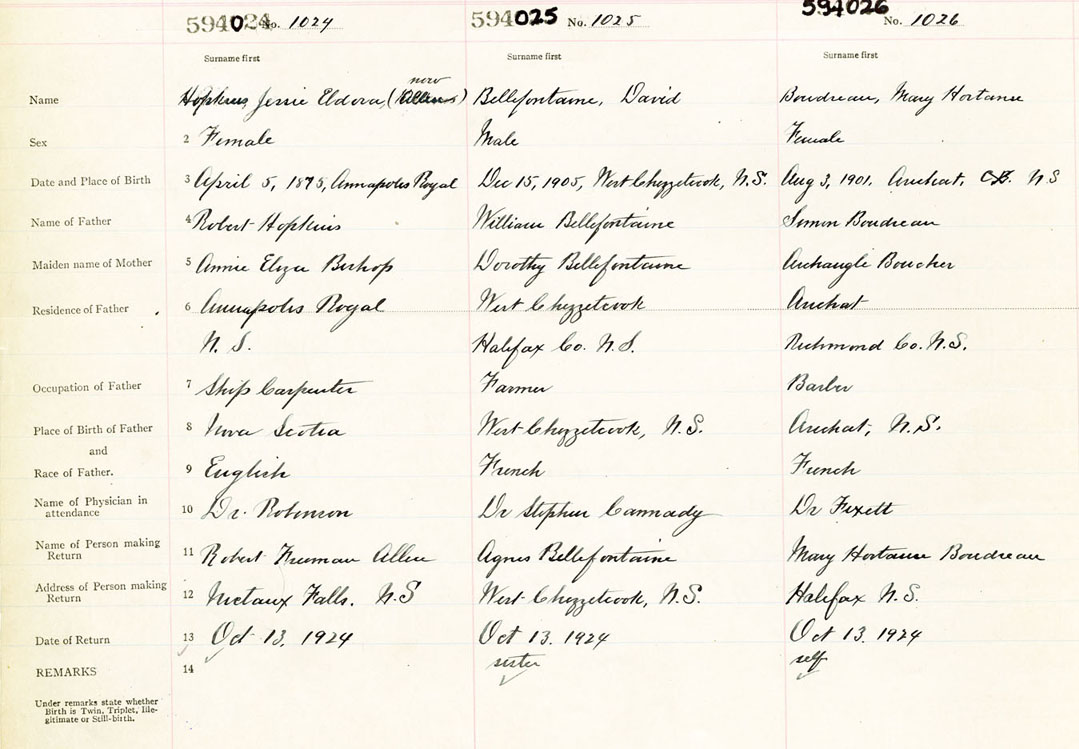 594024 No. 1024 594025 No. 1025 594026 No. 1026
Surname first Surname first Surname first
now
Name Hopkins, Jessie Eldora, (Allen) Bellefontaine, David Boudreau, Mary Hortanse
Sex 2 Female Male Female
Date and Place of Birth 3 April 5, 1875, Annapolis Royal Dec 15, 1905, West Chezzetcook, N.S. Aug 3, 1901. Arichat, C.B. N S
Name of Father 4 Robert Hopkins William Bellefontaine Simon Boudreau
Maiden name of Mother 5 Annie Eliza Bishop Dorothy Bellefontaine Archangle Boucher
Residence of Father 6 Annapolis Royal West Chezzetcook Arichat
N. S. Halifax Co. N.S. Richmond Co. N.S.
Occupation of Father 7 Ship Carpenter Farmer Barber
Place of Birth of Father 8 Nova Scotia West Chezzetcook, N.S. Arichat, N.S.
and
Race of Father. 9 English French French
Name of Physician in
attendance 10 Dr. Robinson Dr Stephen Cannady Dr Fixett
Name of Person making
Return 11 Robert Freeman Allen Agnes Bellefontaine Mary Hortanse Boudreau
Address of Person making
Return 12 Nictaux Falls. N.S West Chezzetcook, N.S. Halifax N.S.
Date of Return 13 Oct 13, 1924 Oct 13. 1924 Oct 13. 1924
REMARKS 14 sister self
Under remarks state whether
Birth is Twin, Triplet, Ille-
gitimate or Still-birth.